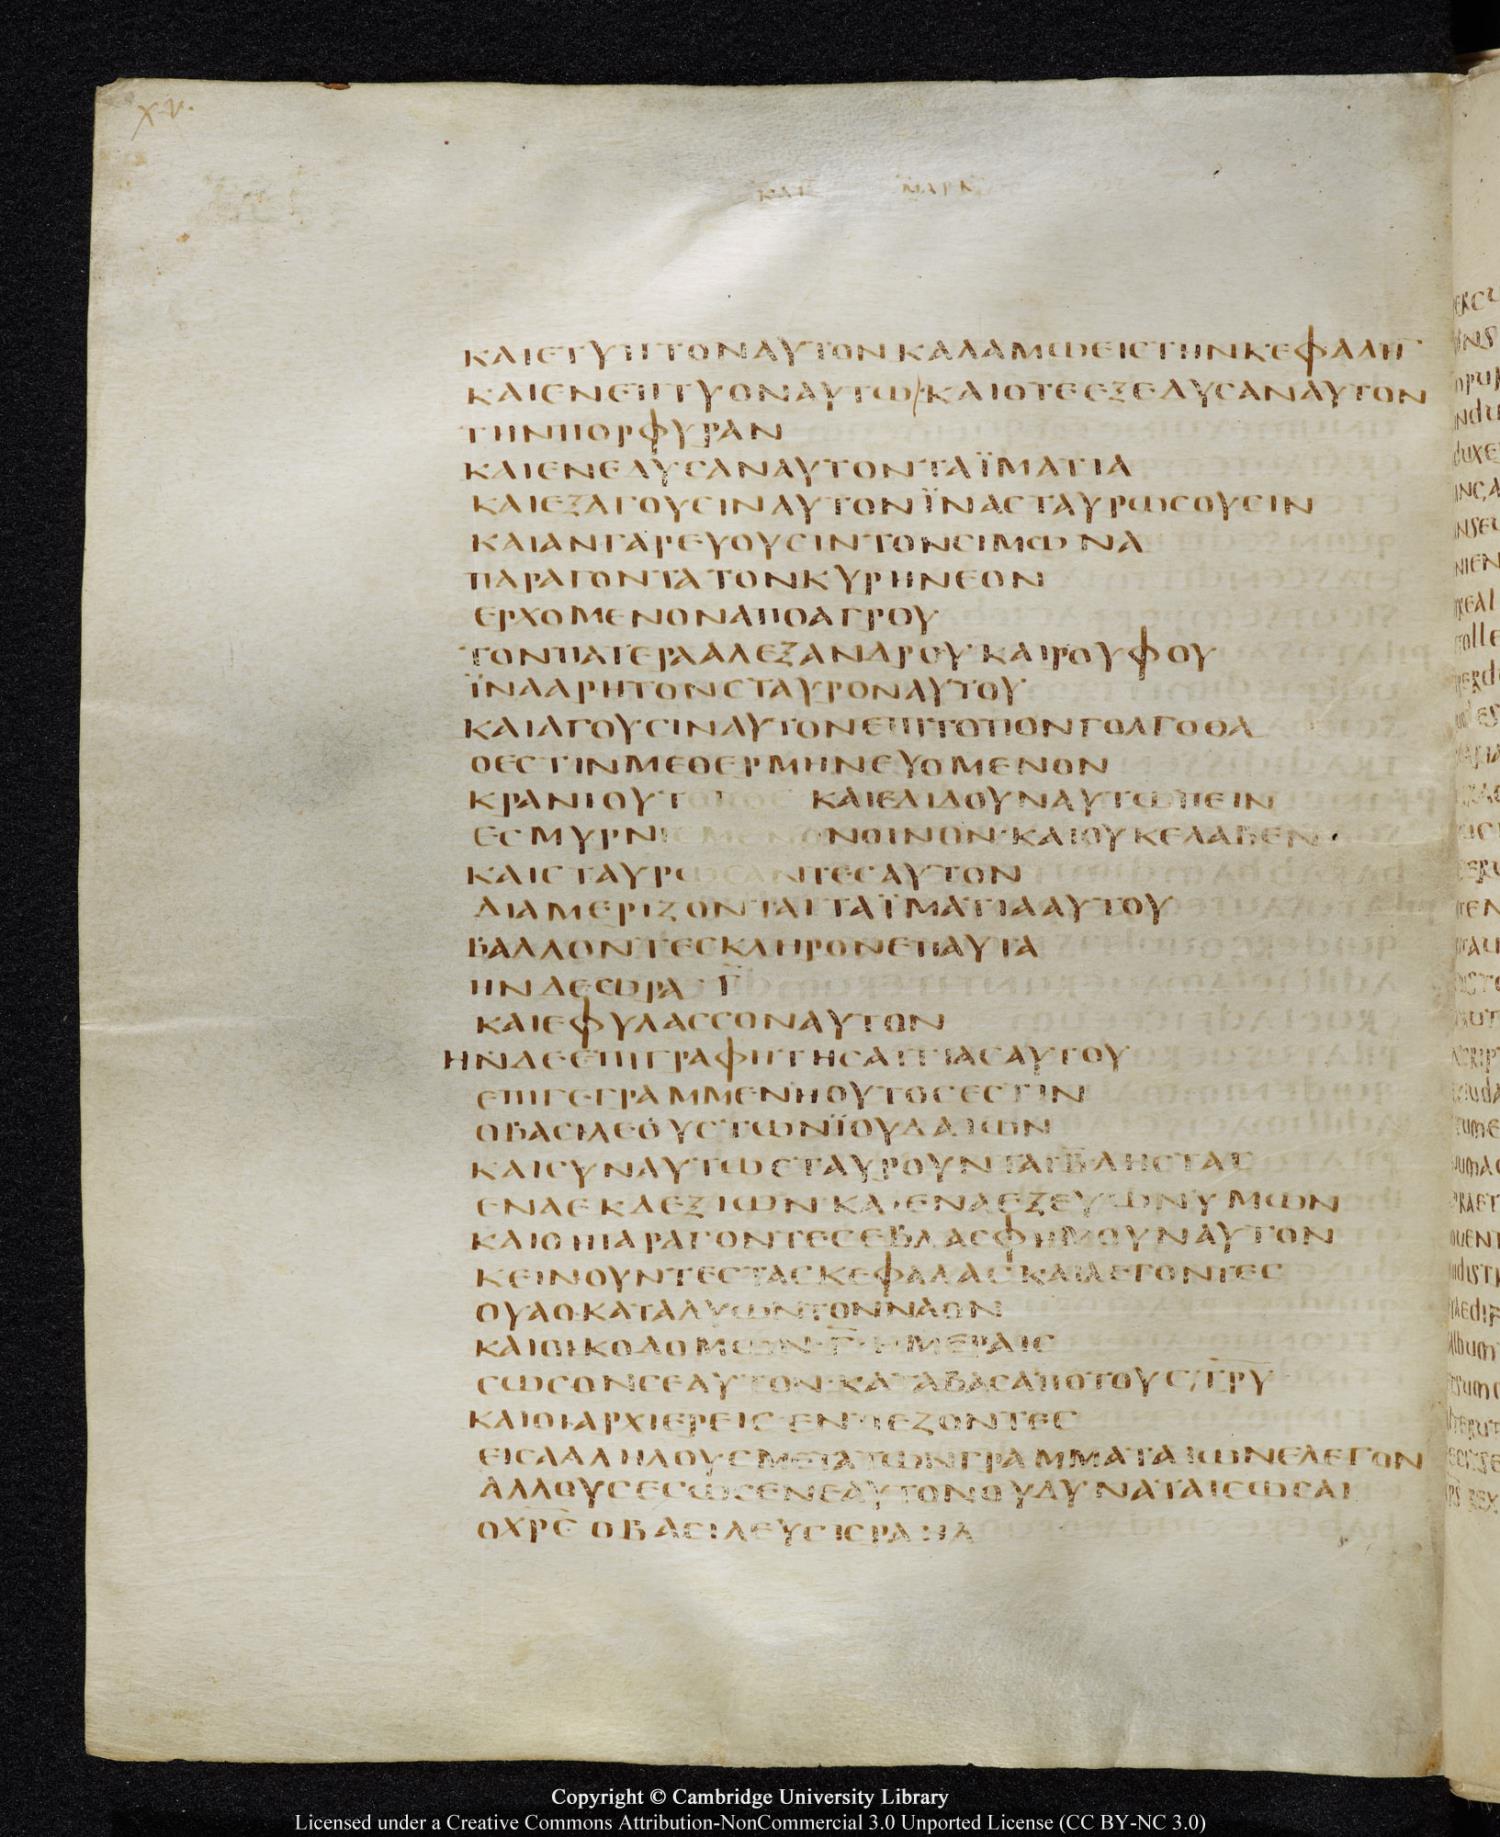 χν.
ΚΑΤ ΜΑΡΚ
ΚΑΙΕΤΥΠΤΟΝΑΥΤΟΝΚΑΛΑΜΩΕΙΣΤΗΝΚΕΦΑΛΗ
ΚΑΙΕΝΕΠΤΥΟΝΑΥΤΩ·ΚΑΙΟΤΕΕΞΕΛΥΣΑΝΑΥΤΟΝ
ΤΗΝΠΟΡΦΥΡΑΝ
ΚΑΙΕΝΕΔΥΣΑΝΑΥΤΟΝΤΑΪΜΑΤΙΑ
ΚΑΙΕΞΑΓΟΥΣΙΝΑΥΤΟΝΪΝΑΣΤΑΥΡΩΣΟΥΣΙΝ
ΚΑΙΑΝΓΑΡΕΥΟΥΣΙΝΤΟΝΣΙΜΩΝΑ
ΠΑΡΑΓΟΝΤΑΤΟΝΚΥΡΗΝΕΟΝ
ΕΡΧΟΜΕΝΟΝΑΠΟΑΓΡΟΥ
ΤΟΝΠΑΤΕΡΑΑΛΕΞΑΝΔΡΟΥ·ΚΑΙΡΟΥΦΟΥ
ΪΝΑΑΡΗΤΟΝΣΤΑΥΡΟΝΑΥΤΟΥ
ΚΑΙΑΓΟΥΣΙΝΑΥΤΟΝΕΠΙΤΟΠΟΝΓΟΛΓΟΘΑ
ΟΕΣΤΙΝΜΕΘΕΡΜΗΝΕΥΟΜΕΝΟΝ
ΚΡΑΝΙΟΥΤΟΠΟΣ ΚΑΙΕΔΙΔΟΥΝΑΥΤΩΠΕΙΝ
ΕΣΜΥΡΝΙΣΜΕΝΟΝΟΙΝΟΝ·ΚΑΙΟΥΚΕΛΑΒΕΝ
ΚΑΙΣΤΑΥΡΩΣΑΝΤΕΣΑΥΤΟΝ
ΔΙΑΜΕΡΙΖΟΝΤΑΙΤΑΪΜΑΤΙΑΑΥΤΟΥ
ΒΑΛΛΟΝΤΕΣΚΛΗΡΟΝΕΠΑΥΤΑ
ΗΝΔΕΩΡΑ Γ̅
ΚΑΙΕΦΥΛΑΣΣΟΝΑΥΤΟΝ
ΗΝΔΕΕΠΙΓΡΑΦΗΤΗΣΑΙΤΙΑΣΑΥΤΟΥ
ΕΠΙΓΕΓΡΑΜΜΕΝΗΟΥΤΟΣΕΣΤΙΝ
ΟΒΑΣΙΛΕΟΥΣΤΩΝΪΟΥΔΑΙΩΝ
ΚΑΙΣΥΝΑΥΤΩΣΤΑΥΡΟΥΝΤΑΙ·Β̅·ΛΗΣΤΑΙ
ΕΝΑΕΚΔΕΞΙΩΝ·ΚΑΙΕΝΑΕΞΕΥΩΝΥΜΩΝ
ΚΑΙΟΙΠΑΡΑΓΟΝΤΕΣΕΒΛΑΣΦΗΜΟΥΝΑΥΤΟΝ
ΚΕΙΝΟΥΝΤΕΣΤΑΣΚΕΦΑΛΑΣ·ΚΑΙΛΕΓΟΝΤΕΣ
ΟΥΑΟ·ΚΑΤΑΛΥΩΝΤΟΝΝΑΟΝ
ΚΑΙΟΙΚΟΔΟΜΩΝ·Γ̅·ΗΜΕΡΑΙΣ
ΣΩΣΟΝΣΕΑΥΤΟΝ·ΚΑΤΑΒΑΣΑΠΟΤΟΥΣΤΡΥ
ΚΑΙΟΙΑΡΧΙΕΡΕΙΣ·ΕΝΠΕΖΟΝΤΕΣ
ΕΙΣΑΛΛΗΛΟΥΣΜΕΤΑΤΩΝΓΡΑΜΜΑΤΑΙΩΝΕΛΕΓΟΝ
ΑΛΛΟΥΣΕΣΩΣΕΝΕΑΥΤΟΝΟΥΔΥΝΑΤΑΙΣΩΣΑΙ
ΟΧΡΣ ΟΒΑΣΙΛΕΥΣΙΣΡΑΗΛ
Copyright © Cambridge University Library
Licensed under a Creative Commons Attribution-NonCommercial 3.0 Unported License (CC BY-NC 3.0)